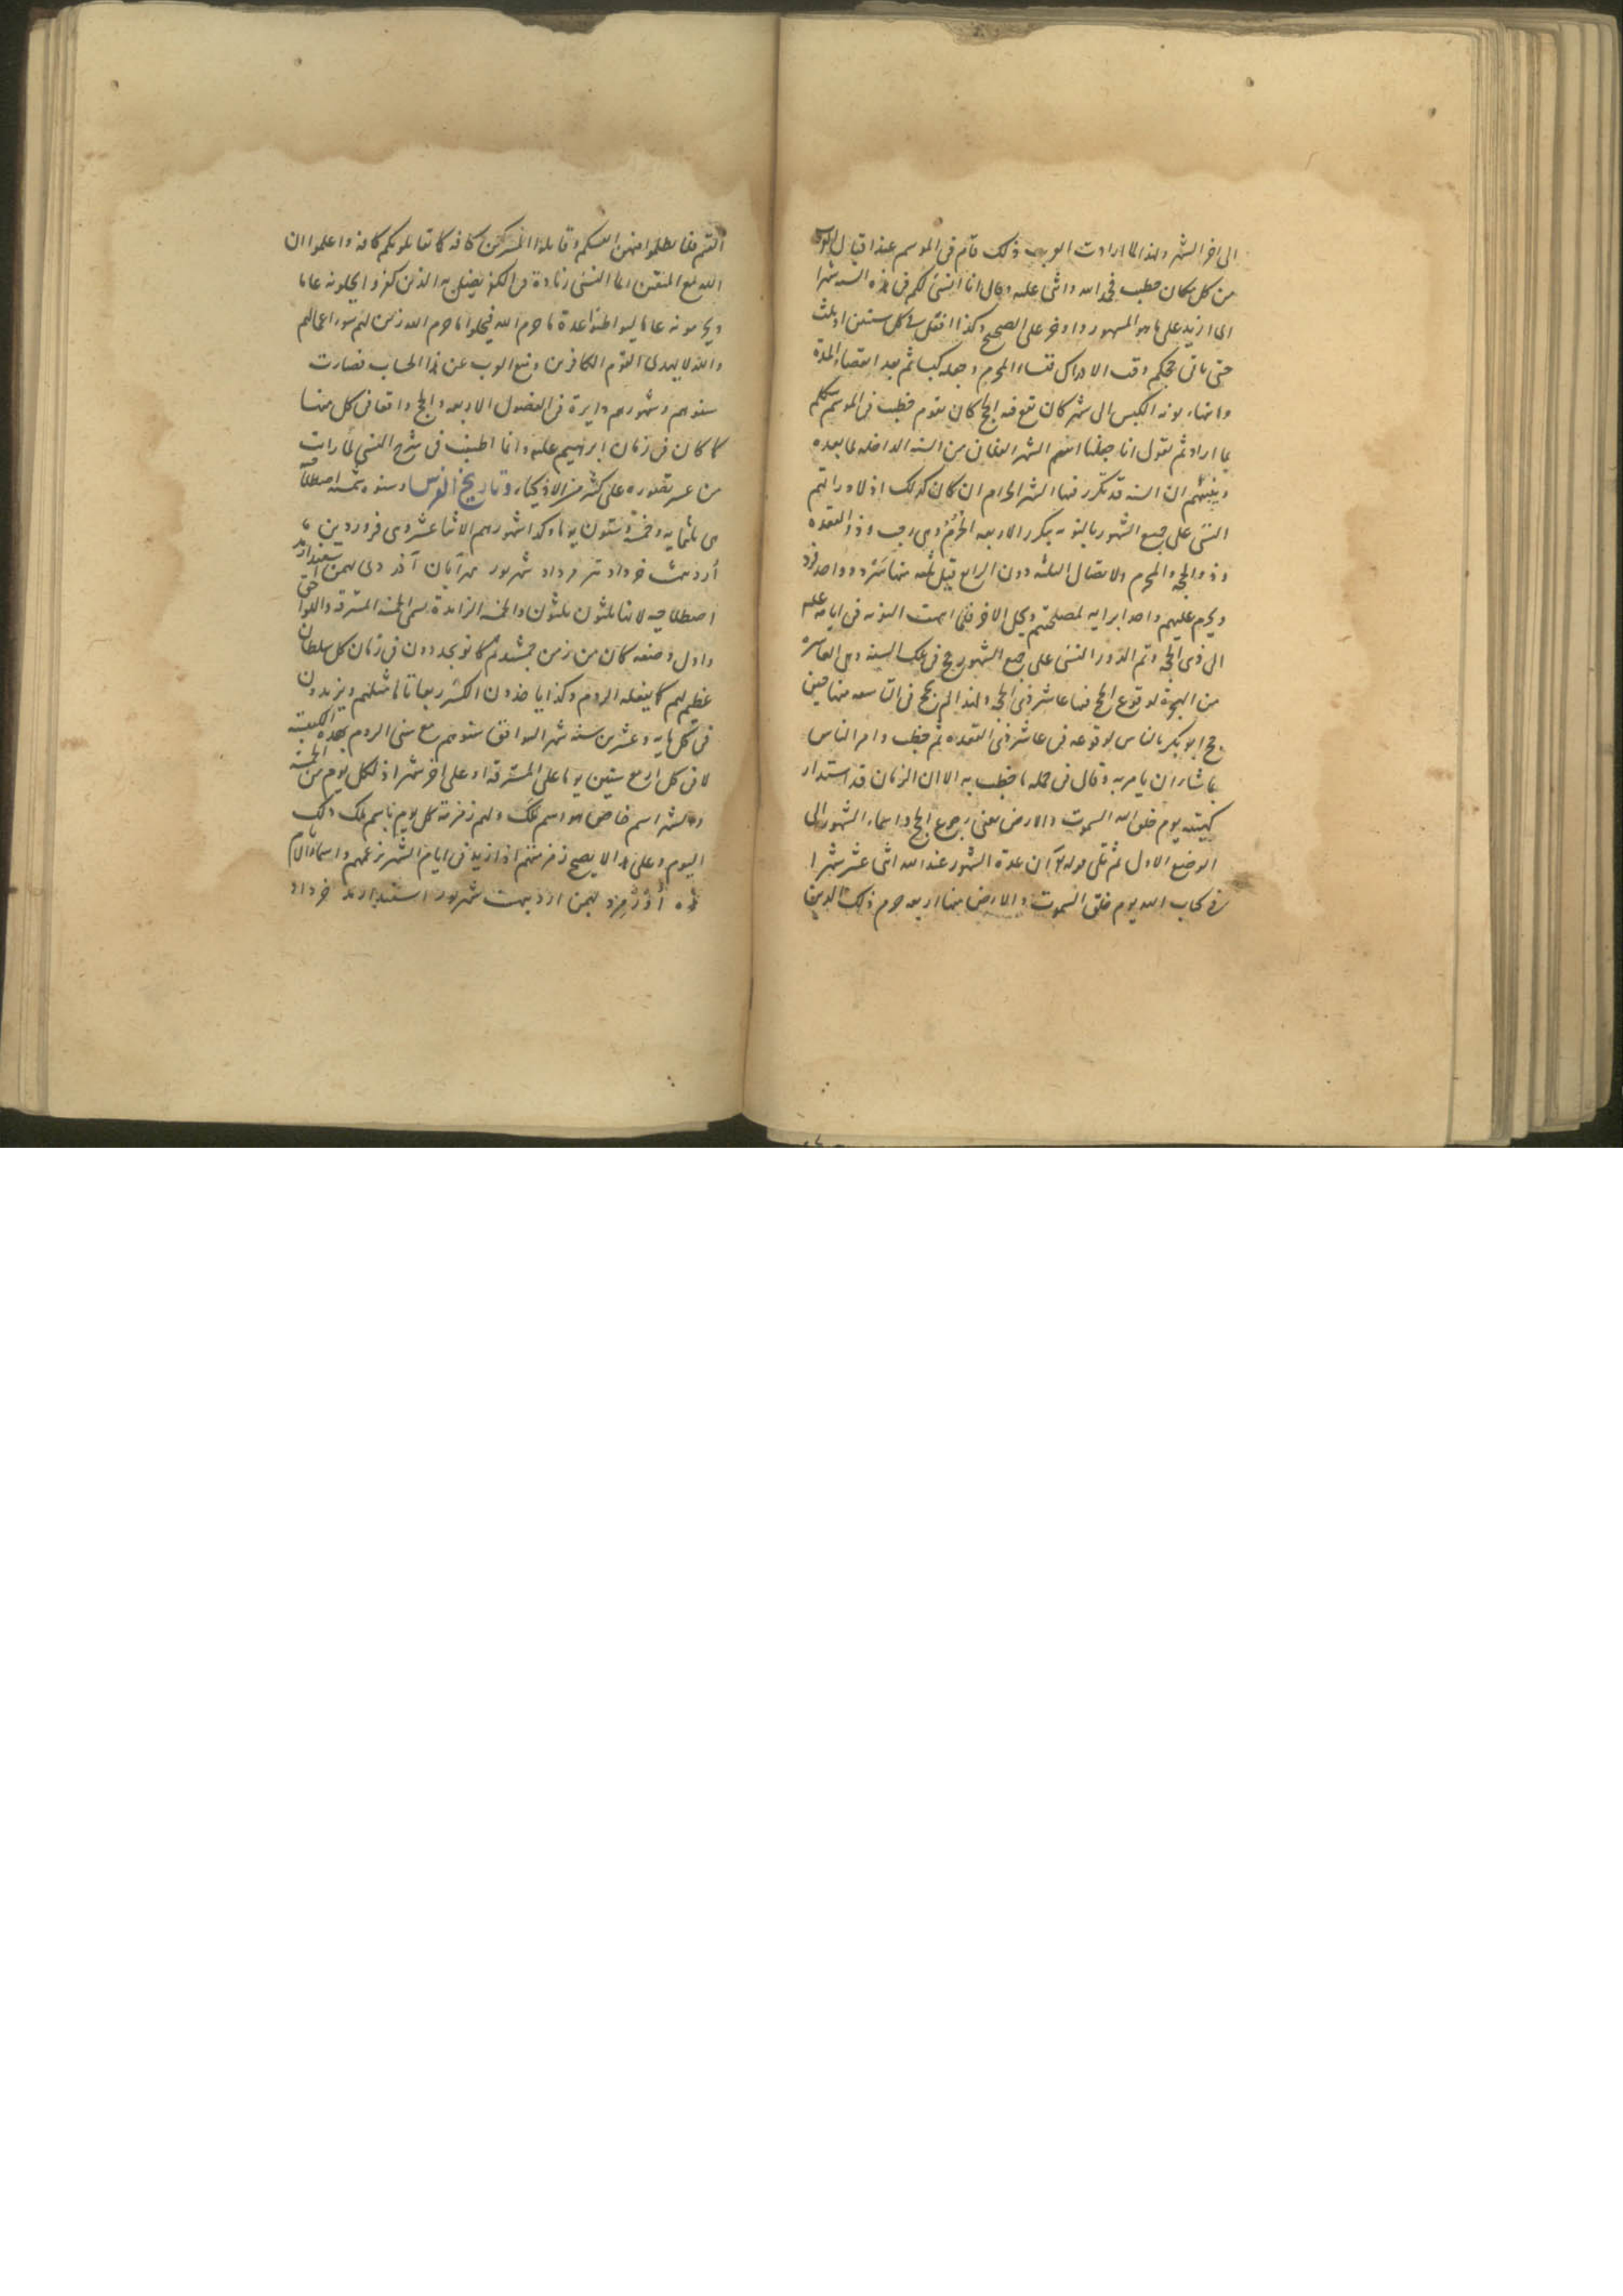 الى اخر الشهر ولهذا لما ارادت العرب ذلك قام فى الموسم عند اقبال العرب
من كل مكان خطيب فحمد الله واثنى عليه وقال انا انسئ لكم فى هذه السنه شهرا
اى ازيد على ما هو المشهور وكذا افعل فى كل سنتين او ثلث
حتى ياتى حجكم وقت الادراك المحرم وجعله كبسا ثم بعد انقضاء المدة
وانتهاء نوبه الكبس الى شهر كان يقع فيه الحج كان يقوم خطيب فى الموسم يتكلم
بما اراد ثم يقول انا جعلنا اسم الشهر الفلانى من السنه الداخله لما بعده
ان السنه قد تكرر فيها الشهر الحرام ان كان كذلك
النسئ على جميع الشهور بالنوبه يتكرر الاربعه الحرم وهى رجب وذو القعده
وذو الحجه والمحرم ولاتصال الثلثه دون الرابع قيل ثلثه منها سرد وواحد فرد
ويحرم عليهم واحدا لمصلحتهم ويحل الاخر فلما انتهت النوبه فى ايامه عليه
الى ذى الحجه وتم الدور النسئ على جميع الشهور حج فى تلك السنه وهى العاشرة
من الهجرة لوقوع الحج فيها عاشر ذى الحجه ولهذا لم يحج فى التاسعه منها حين
حج ابو بكر بالناس لوقوعه فى عاشر ذى القعده ثم خطب وامر الناس
بما شاء ان يامر به وقال فى جمله ما خطب به الا ان الزمان قد استدار
كهيئته يوم خلق الله السموت والارض يعنى رجوع الحج واسماء الشهور الى
الوضع الاول ثم تلى قوله ان عدة الشهور عند الله اثنى عشر شهرا
فى كتاب الله يوم خلق السموت والارض منها اربعه حرم ذلك الدين
القيم فلا تظلموا فيهن انفسكم وقاتلوا المشركين كافه كما يقاتلونكم كافه واعلموا ان
الله مع المتقين انما النسئ زيادة فى الكفر يضل به الذين كفروا يحلونه عاما
ويحرمونه عاما ليواطئوا عدة ما حرم الله فيحلوا ما حرم الله زين لهم سوء اعمالهم
والله لا يهدى القوم الكافرين ومنع العرب عن هذا الحساب فصارت
سنوهم وشهورهم دايرة فى الفصول الاربعه والحج واقعا فى كل منها
كما كان فى زمان ابرهيم عليه وانا اطنبت فى شرح النسئ لما رايت
من عسر تصوره على كثير من الاذكياء وتاريخ الفرس وسنوه شمسه اصطلاحا
هى ثلثمايه وخمسة وستون يوما وكذا شهورهم الاثنا عشر وهى فروردين ماه
اردبهشت خرداد تير مرداد شهريور مهر آبان آذر دى بهمن اسفندارمذ
اصطلاحيه لانها ثلثون ثلثون والخمسه الزايدة يسمى الخمسه المسترقه واللواحق
واول وضعه كان من زمن جمشيد ثم كانوا يجددون فى زمان كل سلطان
عظيم لهم كما يفعله الروم وكذا ياخذون الكسر ربعا تاما مثلهم ويزيدون
فى كل مايه وعشرين سنه شهرا ليوافق سنوهم مع سنى الروم بهذه الكبيسه
لا فى كل اربع سنين يوما على المسترقه او على اخر شهر اذ لكل يوم من الخمسه
والشهر اسم خاص هو اسم ملك ولهم زمزمه كل يوم باسم ملك ذلك
اليوم وعلى هذا لا يصح زمزمتهم اذا زيد فى ايام الشهر بزعمهم واسماء الايام
هذه اورمزد بهمن ارديبهشت شهريور اسفندارمذ خرداد